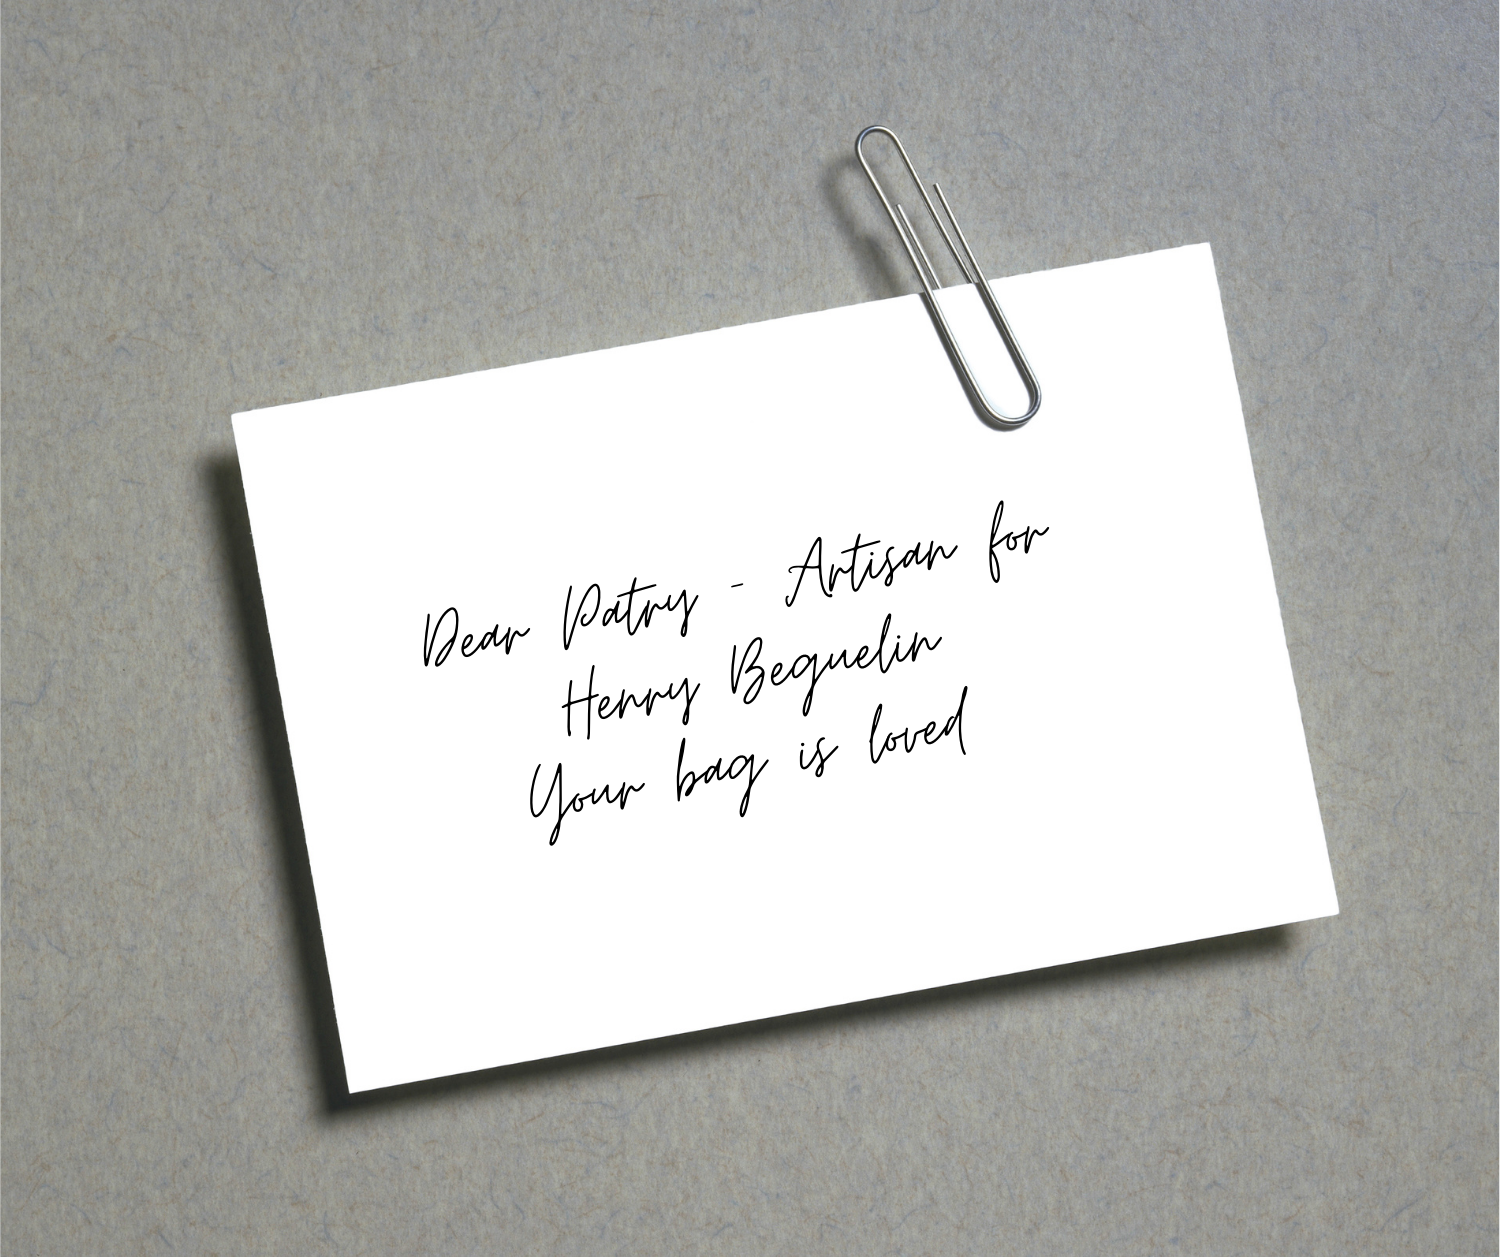 Dear Patry - Artisan for
Henry Beguelin
Your bag is loved